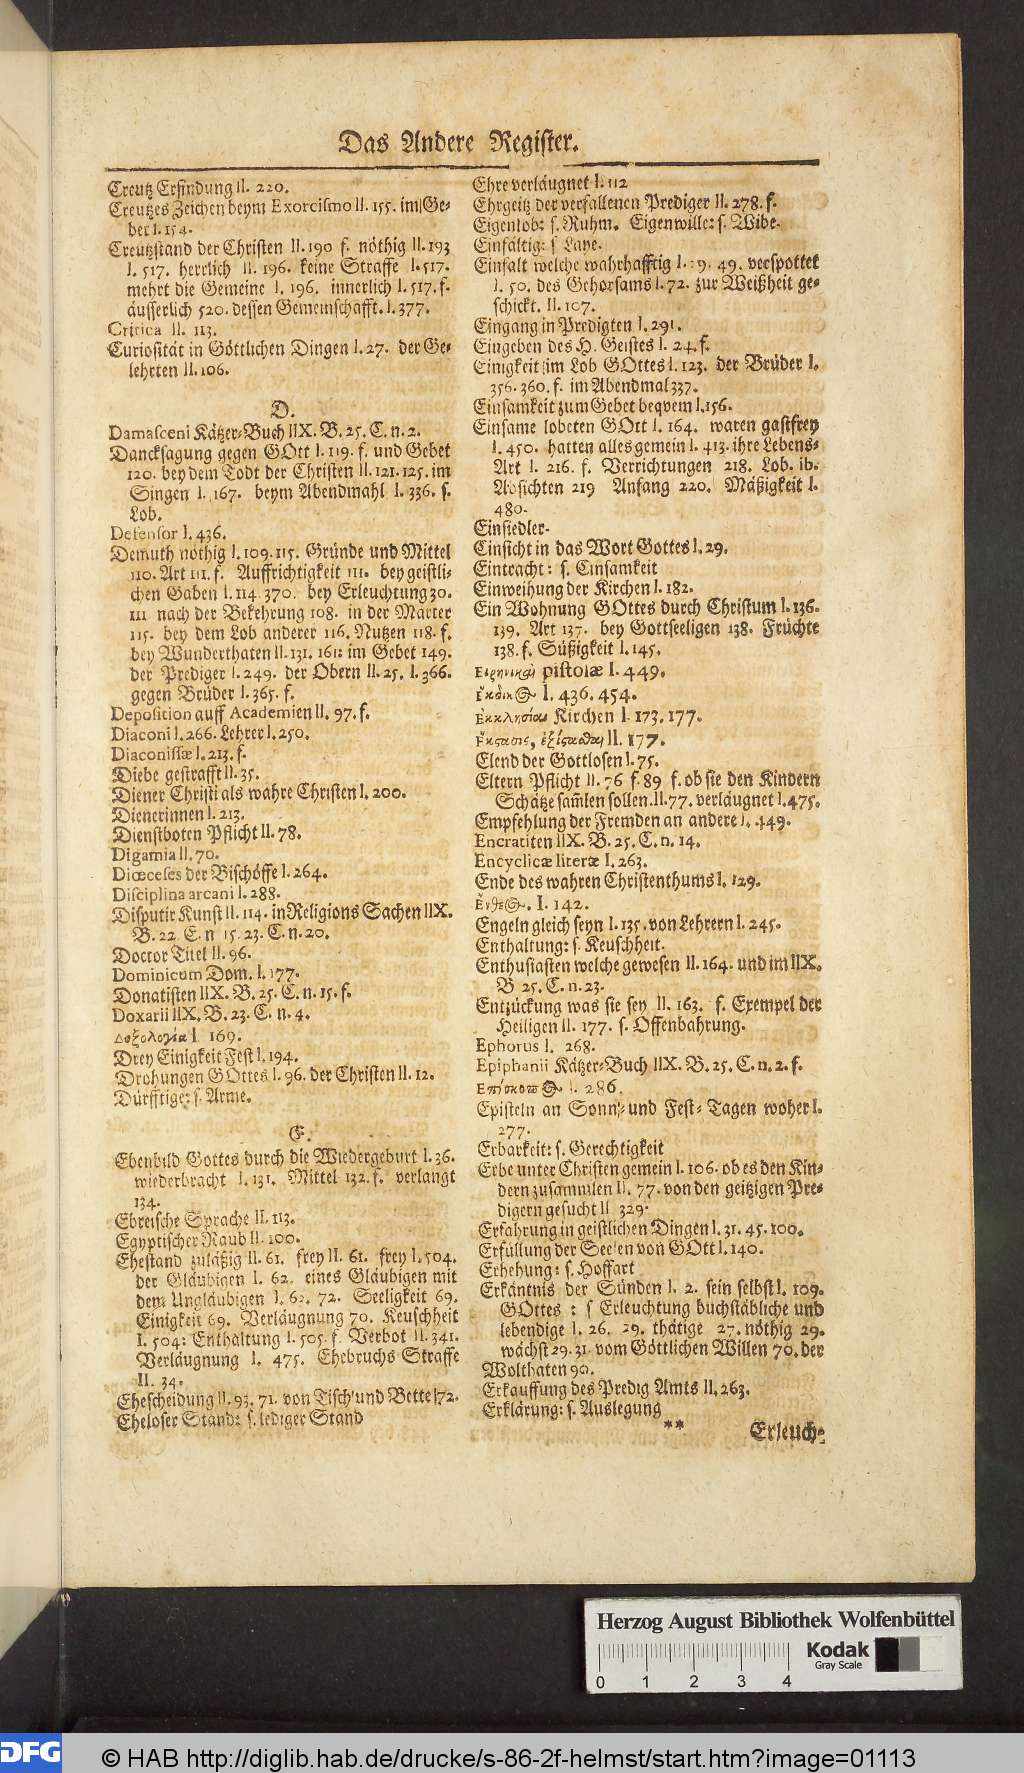 Das Andere Register.
Creutz Erfindung II. 220.
Creutzes Zeichen beym Exorcismo II. 155. im Ge-
ber I. 154.
Creutzstand der Christen II. 190 f. nöthig II. 193
I. 517. herrlich II. 196. keine Straffe I. 517.
mehrt die Gemeine I. 196. innerlich I. 517. f.
äusserlich 520. dessen Gemeinschafft. I. 377.
Critica II. 113.
Curiosität in Göttlichen Dingen I. 27. der Ge-
lehrten II. 106.
D.
Damasceni Kätzer-Buch IIX. B. 25. C. n. 2.
Dancksagung gegen GOtt I. 119. f. und Gebet
120. bey dem Todt der Christen II. 121. 125. im
Singen I. 167. beym Abendmahl I. 336. s.
Lob.
Defensor I. 436.
Demuth nöthig I. 109. 115. Gründe und Mittel
110. Art 111. f. Auffrichtigkeit 111. bey geistli-
chen Gaben I. 114 370. bey Erleuchtung 30.
111 nach der Bekehrung 108. in der Marter
115. bey dem Lob anderer 116. Nutzen 118. f.
bey Wunderthaten II. 131. 161: im Gebet 149.
der Prediger I. 249. der Obern II. 25. I. 366.
gegen Brüder I. 365. f.
Deposition auff Academien II. 97. f.
Diaconi I. 266. Lehrer I. 250.
Diaconissæ I. 213. f.
Diebe gestrafft II. 35.
Diener Christi als wahre Christen I. 200.
Dienerinnen I. 213.
Dienstboten Pflicht II. 78.
Digamia II. 70.
Diœceses der Bischöffe I. 264.
Disciplina arcani I. 288.
Disputir Kunst II. 114. in Religions Sachen IIX.
B. 22. C. n 15. 23. C. n. 20.
Doctor Titel II. 96.
Dominicum Dom. I. 177.
Donatisten IIX. B. 25. C. n. 15. f.
Doxarii IIX. B. 23. C. n. 4.
Δοξολογία I 169.
Drey Einigkeit Fest I. 194.
Drohungen GOttes I. 96. der Christen II. 12.
Dürfftige: s. Arme.
E.
Ebenbild Gottes durch die Wiedergeburt I. 36.
wiederbracht I. 131. Mittel 132. f. verlangt
134.
Ebreische Sprache II. 113.
Egyptischer Raub II. 100.
Ehestand zuläßig II. 61. frey II. 61. frey I. 504.
der Gläubigen I. 62. eines Gläubigen mit
dem Ungläubigen I. 62. 72. Seeligkeit 69.
Einigkeit 69. Verläugnung 70. Keuschheit
I. 504: Enthaltung I. 505. f. Verbot II. 341.
Verläugnung I. 475. Ehebruchs Straffe
II. 34.
Ehescheidung II. 93. 71. von Tisch und Bette 72.
Eheloser Stand: s. lediger Stand
Ehre verläugnet I. 112
Ehrgeitz der verfallenen Prediger II. 278. f.
Eigenlob: s. Ruhm. Eigenwille: s. Wibe.
Einfältig: s Laye.
Einfalt welche wahrhafftig I. 9. 49. verspottet
I. 50. des Gehorsams I. 72. zur Weißheit ge-
schickt. II. 107.
Eingang in Predigten I. 291.
Eingeben des H. Geistes I. 24. f.
Einigkeit im Lob GOttes I. 123. der Brüder I.
356. 360. f. im Abendmal 337.
Einsamkeit zum Gebet beqvem I. 156.
Einsame lobeten GOtt I. 164. waren gastfrey
I. 450. hatten alles gemein I. 413. ihre Lebens-
Art I. 216. f. Verrichtungen 218. Lob. ib.
Absichten 219 Anfang 220. Mäßigkeit I.
480.
Einsiedler.
Einsicht in das Wort Gottes I. 29.
Eintracht: s. Einsamkeit
Einweihung der Kirchen I. 182.
Ein Wohnung GOttes durch Christum I. 136.
139. Art 137. bey Gottseeligen 138. Früchte
138. f. Süßigkeit I. 145.
Εἰρηνικαὶ pistolæ I. 449.
I. 436. 454.
Ἐκκλησίαι Kirchen I 173. 177.
Ἔκστασις, II. 177.
Elend der Gottlosen I. 75.
Eltern Pflicht II. 76 f. 89 f. ob sie den Kindern
Schätze sam̃len sollen. II. 77. verläugnet I. 475.
Empfehlung der Fremden an andere I. 449.
Encratiten IIX. B. 25. C. n. 14.
Encyclicæ literæ I. 263.
Ende des wahren Christenthums I. 129.
I. 142.
Engeln gleich seyn I. 135. von Lehrern I. 245.
Enthaltung: s. Keuschheit.
Enthusiasten welche gewesen II. 164. und im IIX.
B 25. C. n. 23.
Entzückung was sie sey II. 163. f. Exempel der
Heiligen II. 177. s. Offenbahrung.
Ephorus I. 268.
Epiphanii Kätzer-Buch IIX. B. 25. C. n. 2. f.
Ἐπίσκοπος I. 286.
Episteln an Sonn- und Fest-Tagen woher I.
277.
Erbarkeit: s. Gerechtigkeit
Erbe unter Christen gemein I. 106. ob es den Kin-
dern zusammlen II. 77. von den geitzigen Pre-
digern gesucht II 329.
Erfahrung in geistlichen Dingen I. 31. 45. 100.
Erfüllung der Seelen von GOtt I. 140.
Erhehung: s. Hoffart
Erkäntnis der Sünden I. 2. sein selbst I. 109.
GOttes : s Erleuchtung buchstäbliche und
lebendige I. 26. 29. thätige 27. nöthig 29.
wächst 29. 31 vom Göttlichen Willen 70. der
Wolthaten 90.
Erkauffung des Predig Amts II. 263.
Erklärung: s. Auslegung
** Erleuch-
Herzog August Bibliothek Wolfenbüttel
Kodak
Gray Scale
0 1 2 3 4
DFG © HAB http://diglib.hab.de/drucke/s-86-2f-helmst/start.htm?image=01113